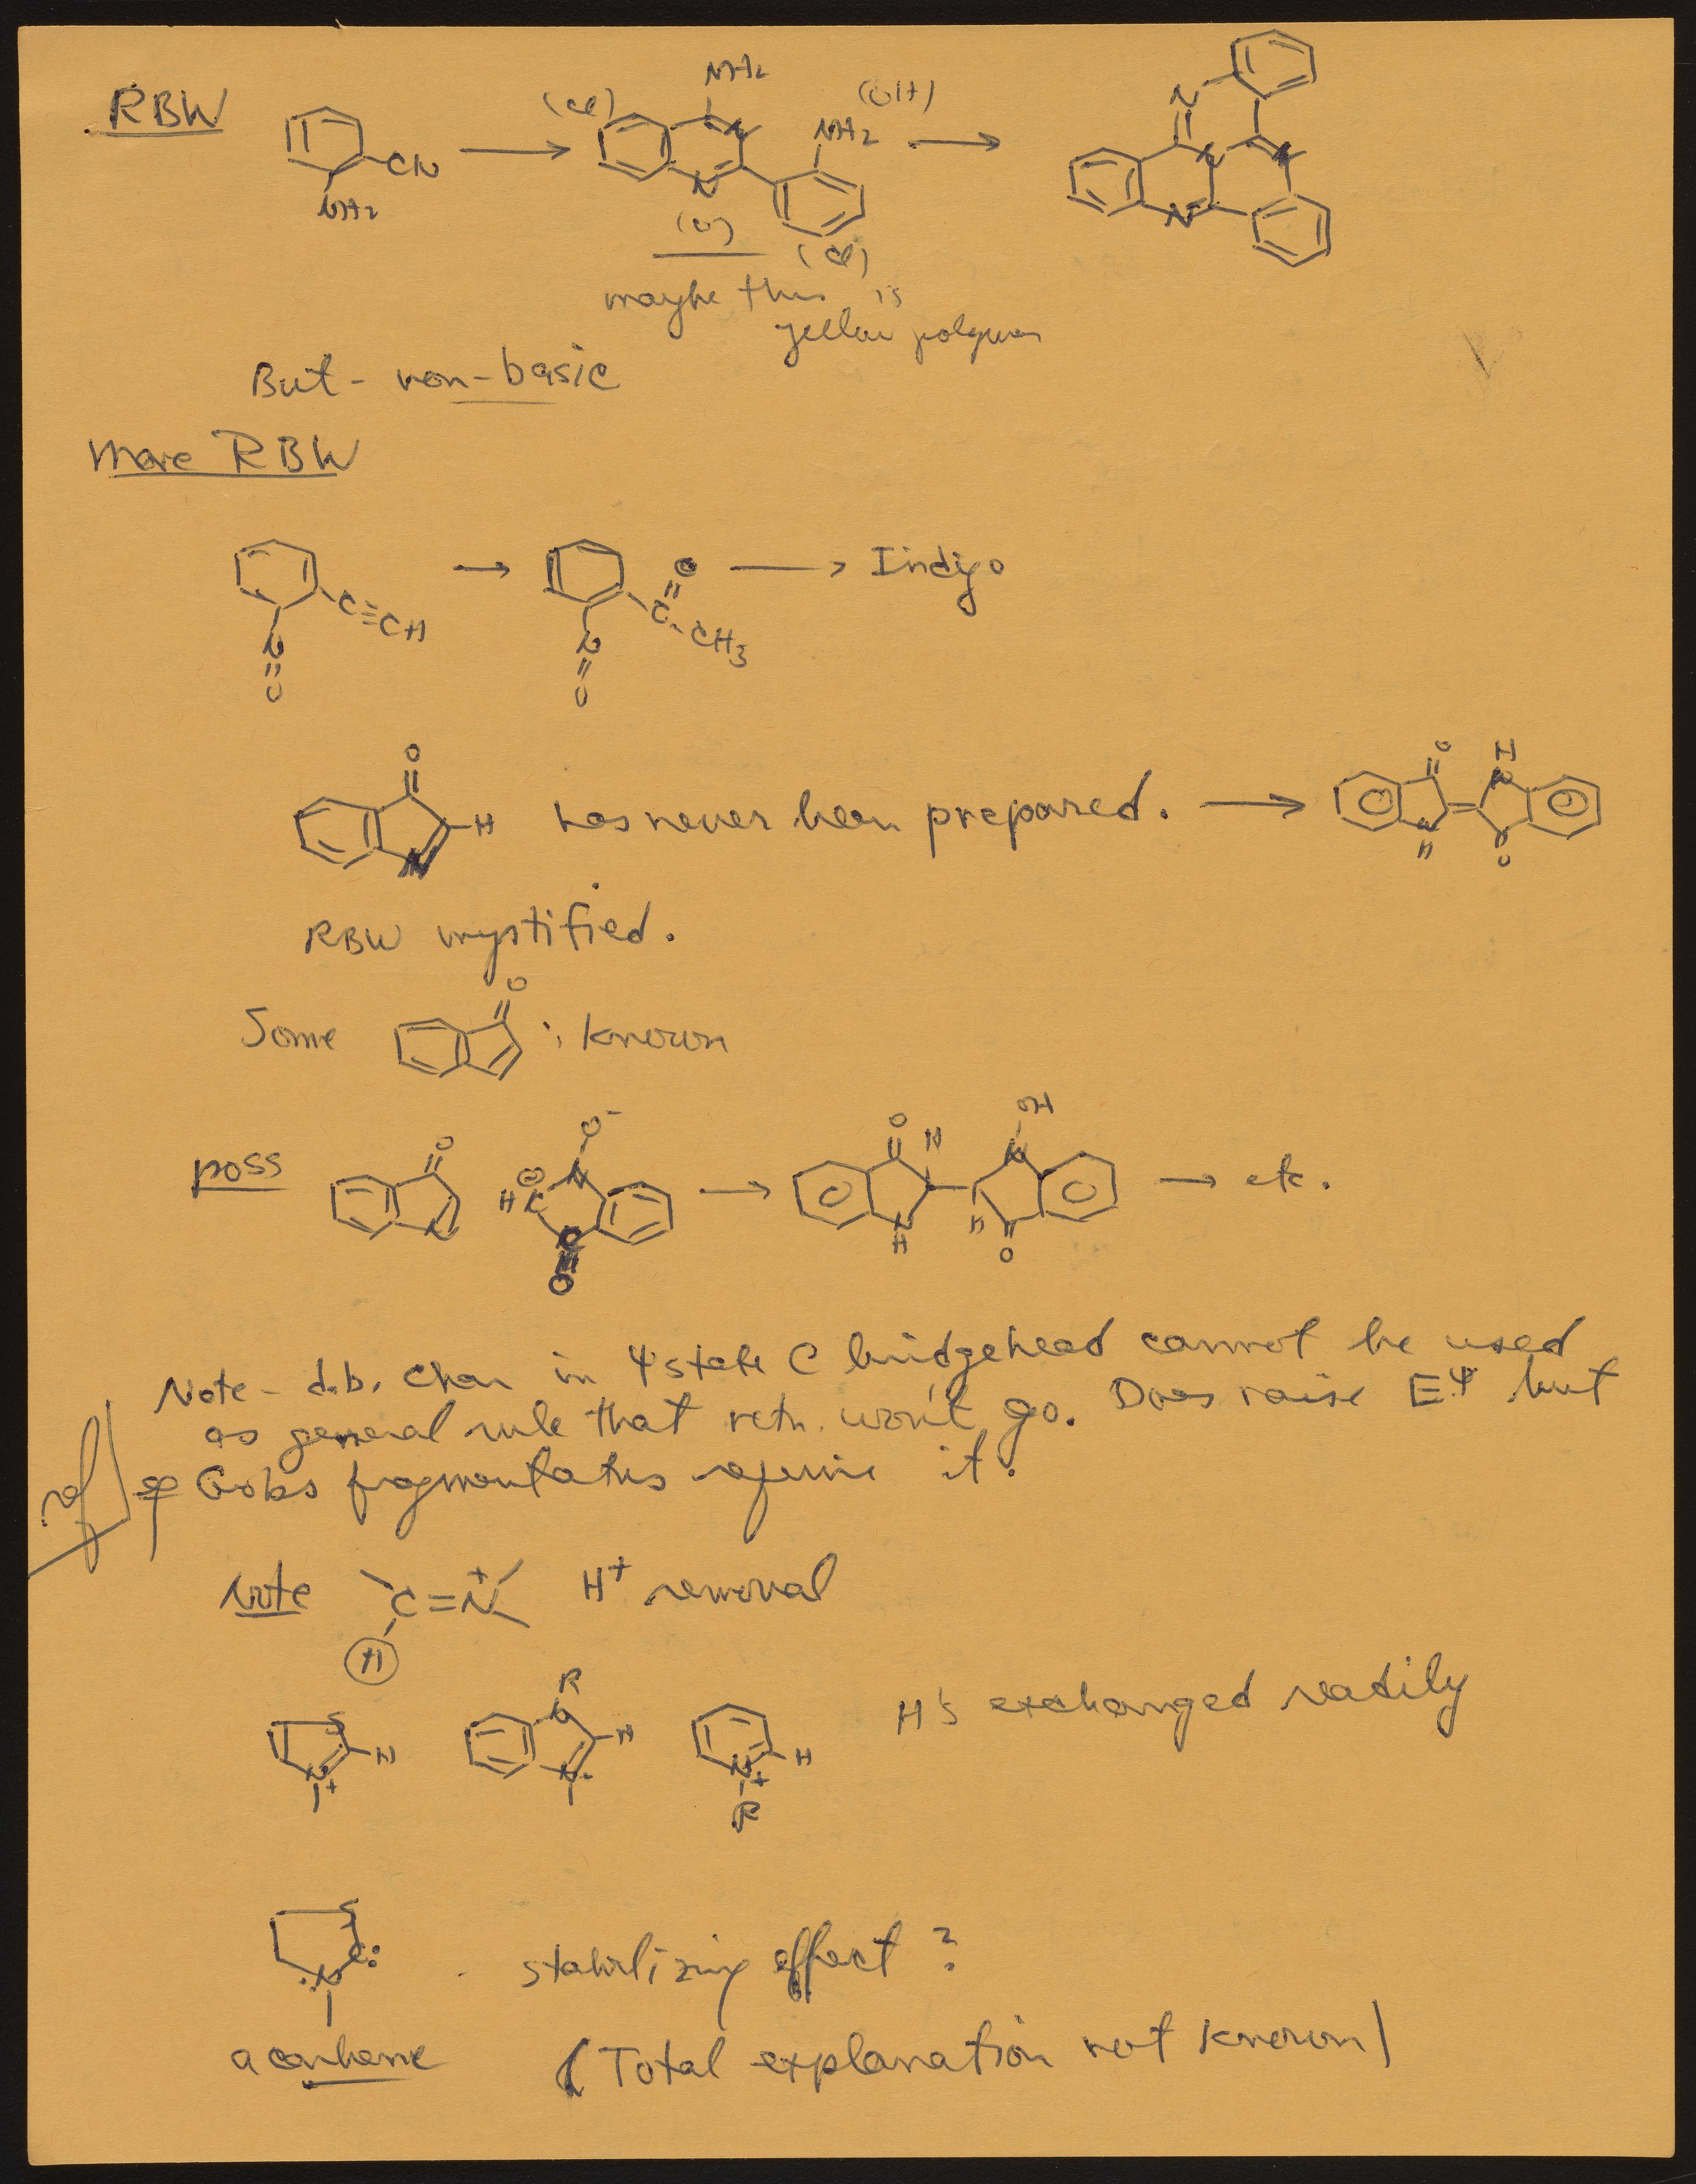 RBW
CN
NH2
(Cl)
NH2
N
N
(O)
NH2
(OH)
(Cl)
N
N
N
N
maybe this is
yellow polymer
But - non-basic
More RBW
C≡CH
N
O
O
C
CH3
N
O
Indigo
O
H
N
has never been prepared.
O
H
N
N
H
O
RBW mystified.
Some
O
: known
poss
O
N
O-
N
⊖
HC
C
O
O
H
N
H
OH
N
H
O
→ etc.
Note - d.b. char in Ψ state C bridgehead cannot be used
as general rule that rctn. won't go. Does raise EΨ but
Grobs fragmentatns require it.
ref
Note
C=N+
H
H+ removal
S
H
N+
R
N
H
N+
H
N+
R
H's exchanged readily
S
C:
:N
stabilizing effect ?
a carbene
(Total explanation not known)